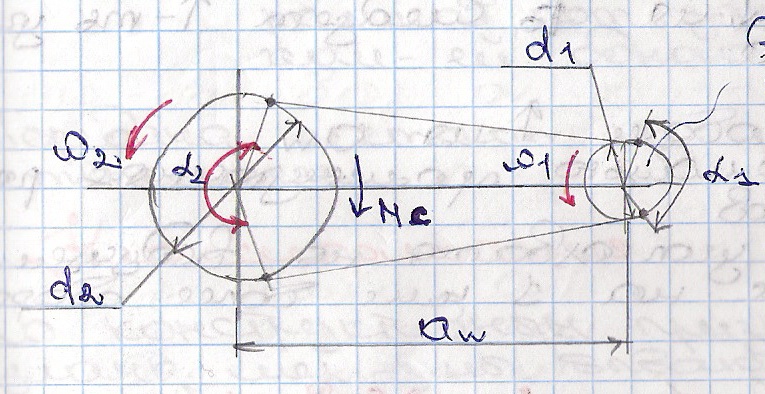 d1
ω2
α2
ω1
α1
Mc
d2
aw